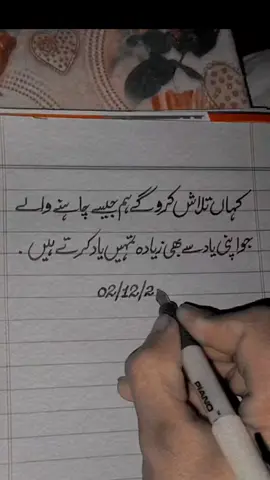 کہاں تلاش کرو گے ہم جیسے چاہنے والے
جو اپنی یاد سے بھی زیادہ تمہیں یاد کرتے ہیں .
02/12/2
PIANO